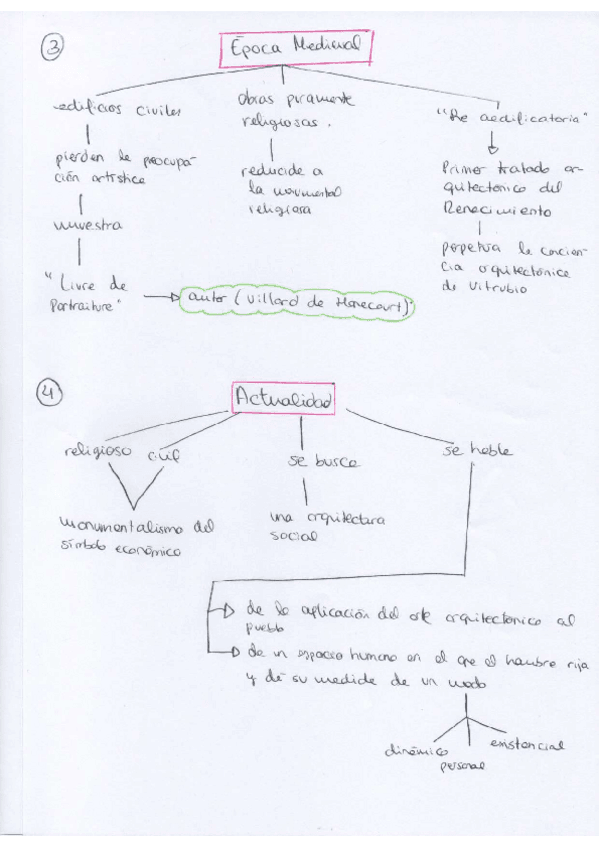 3
Época Medieval
edificios civiles
pierden la preocupa-
ción artística
muestra
"Livre de
Portraiture"
autor (Villard de Honecourt)
obras puramente
religiosas.
reducida a
la monumental
religiosa
"Re aedificatoria"
Primer tratado ar-
quitectónico del
Renacimiento
perpetúa la concien-
cia arquitectónica
de Vitrubio
4
Actualidad
religioso civil
monumentalismo del
símbolo económico
se busca
una arquitectura
social
se habla
de la aplicación del arte arquitectónico al
pueblo
de un espacio humano en el que el hombre rija
y dé su medida de un modo
dinámico
personal
existencial